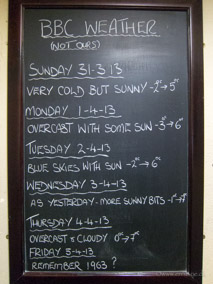 BBC WEATHER
(NOT OURS)
SUNDAY 31-3-13
VERY COLD BUT SUNNY -2°→5°
MONDAY 1-4-13
OVERCAST WITH SOME SUN -3°→6°
TUESDAY 2-4-13
BLUE SKIES WITH SUN -2°→6°
WEDNESDAY 3-4-13
AS YESTERDAY - MORE SUNNY BITS -1°→7°
THURSDAY 4-4-13
OVERCAST & CLOUDY 0°→7°
FRIDAY 5-4-13
REMEMBER 1963 ?